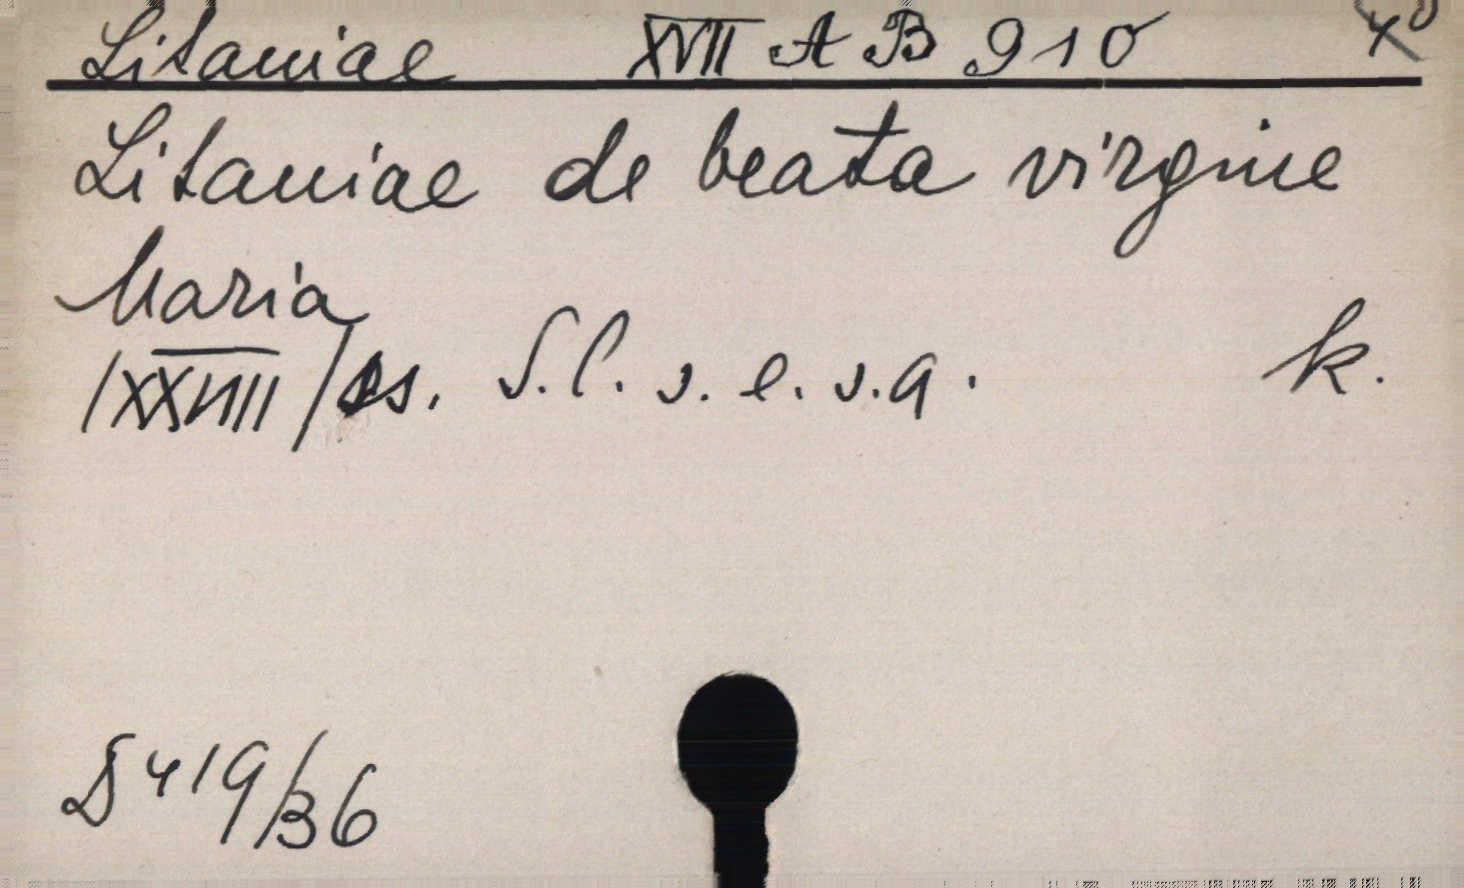 Litaniae XVII AB 910
Litaniae de beata virgine
Maria
/XXVIII/ ss. S. l. s. e. s. a. k.
419/36